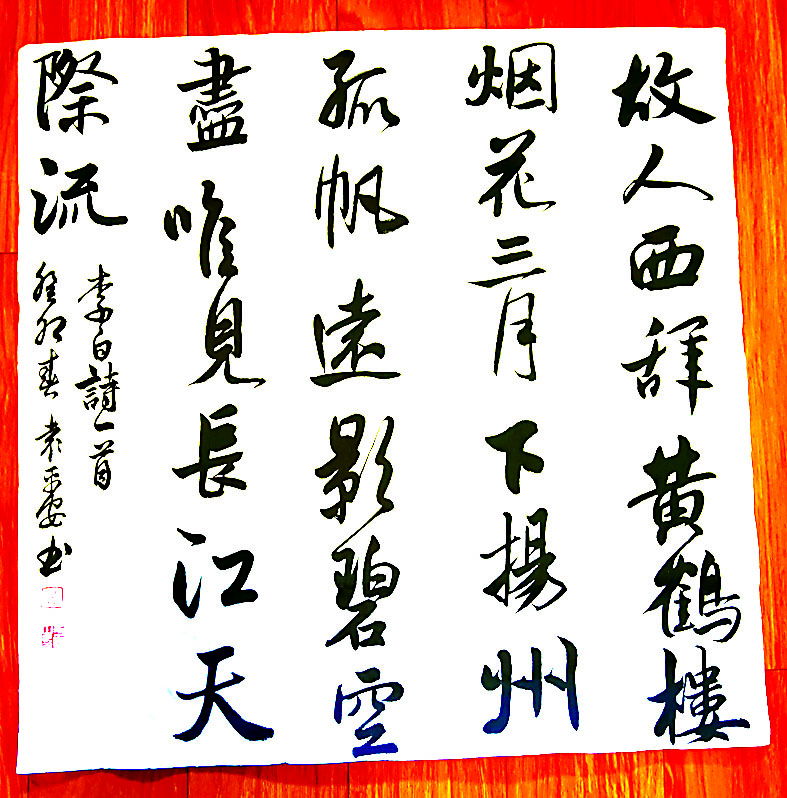 故人西辞黄鶴樓
烟花三月下揚州
孤帆遠影碧空
盡唯見長江天
際流
李白詩一首
癸卯春 袁 书